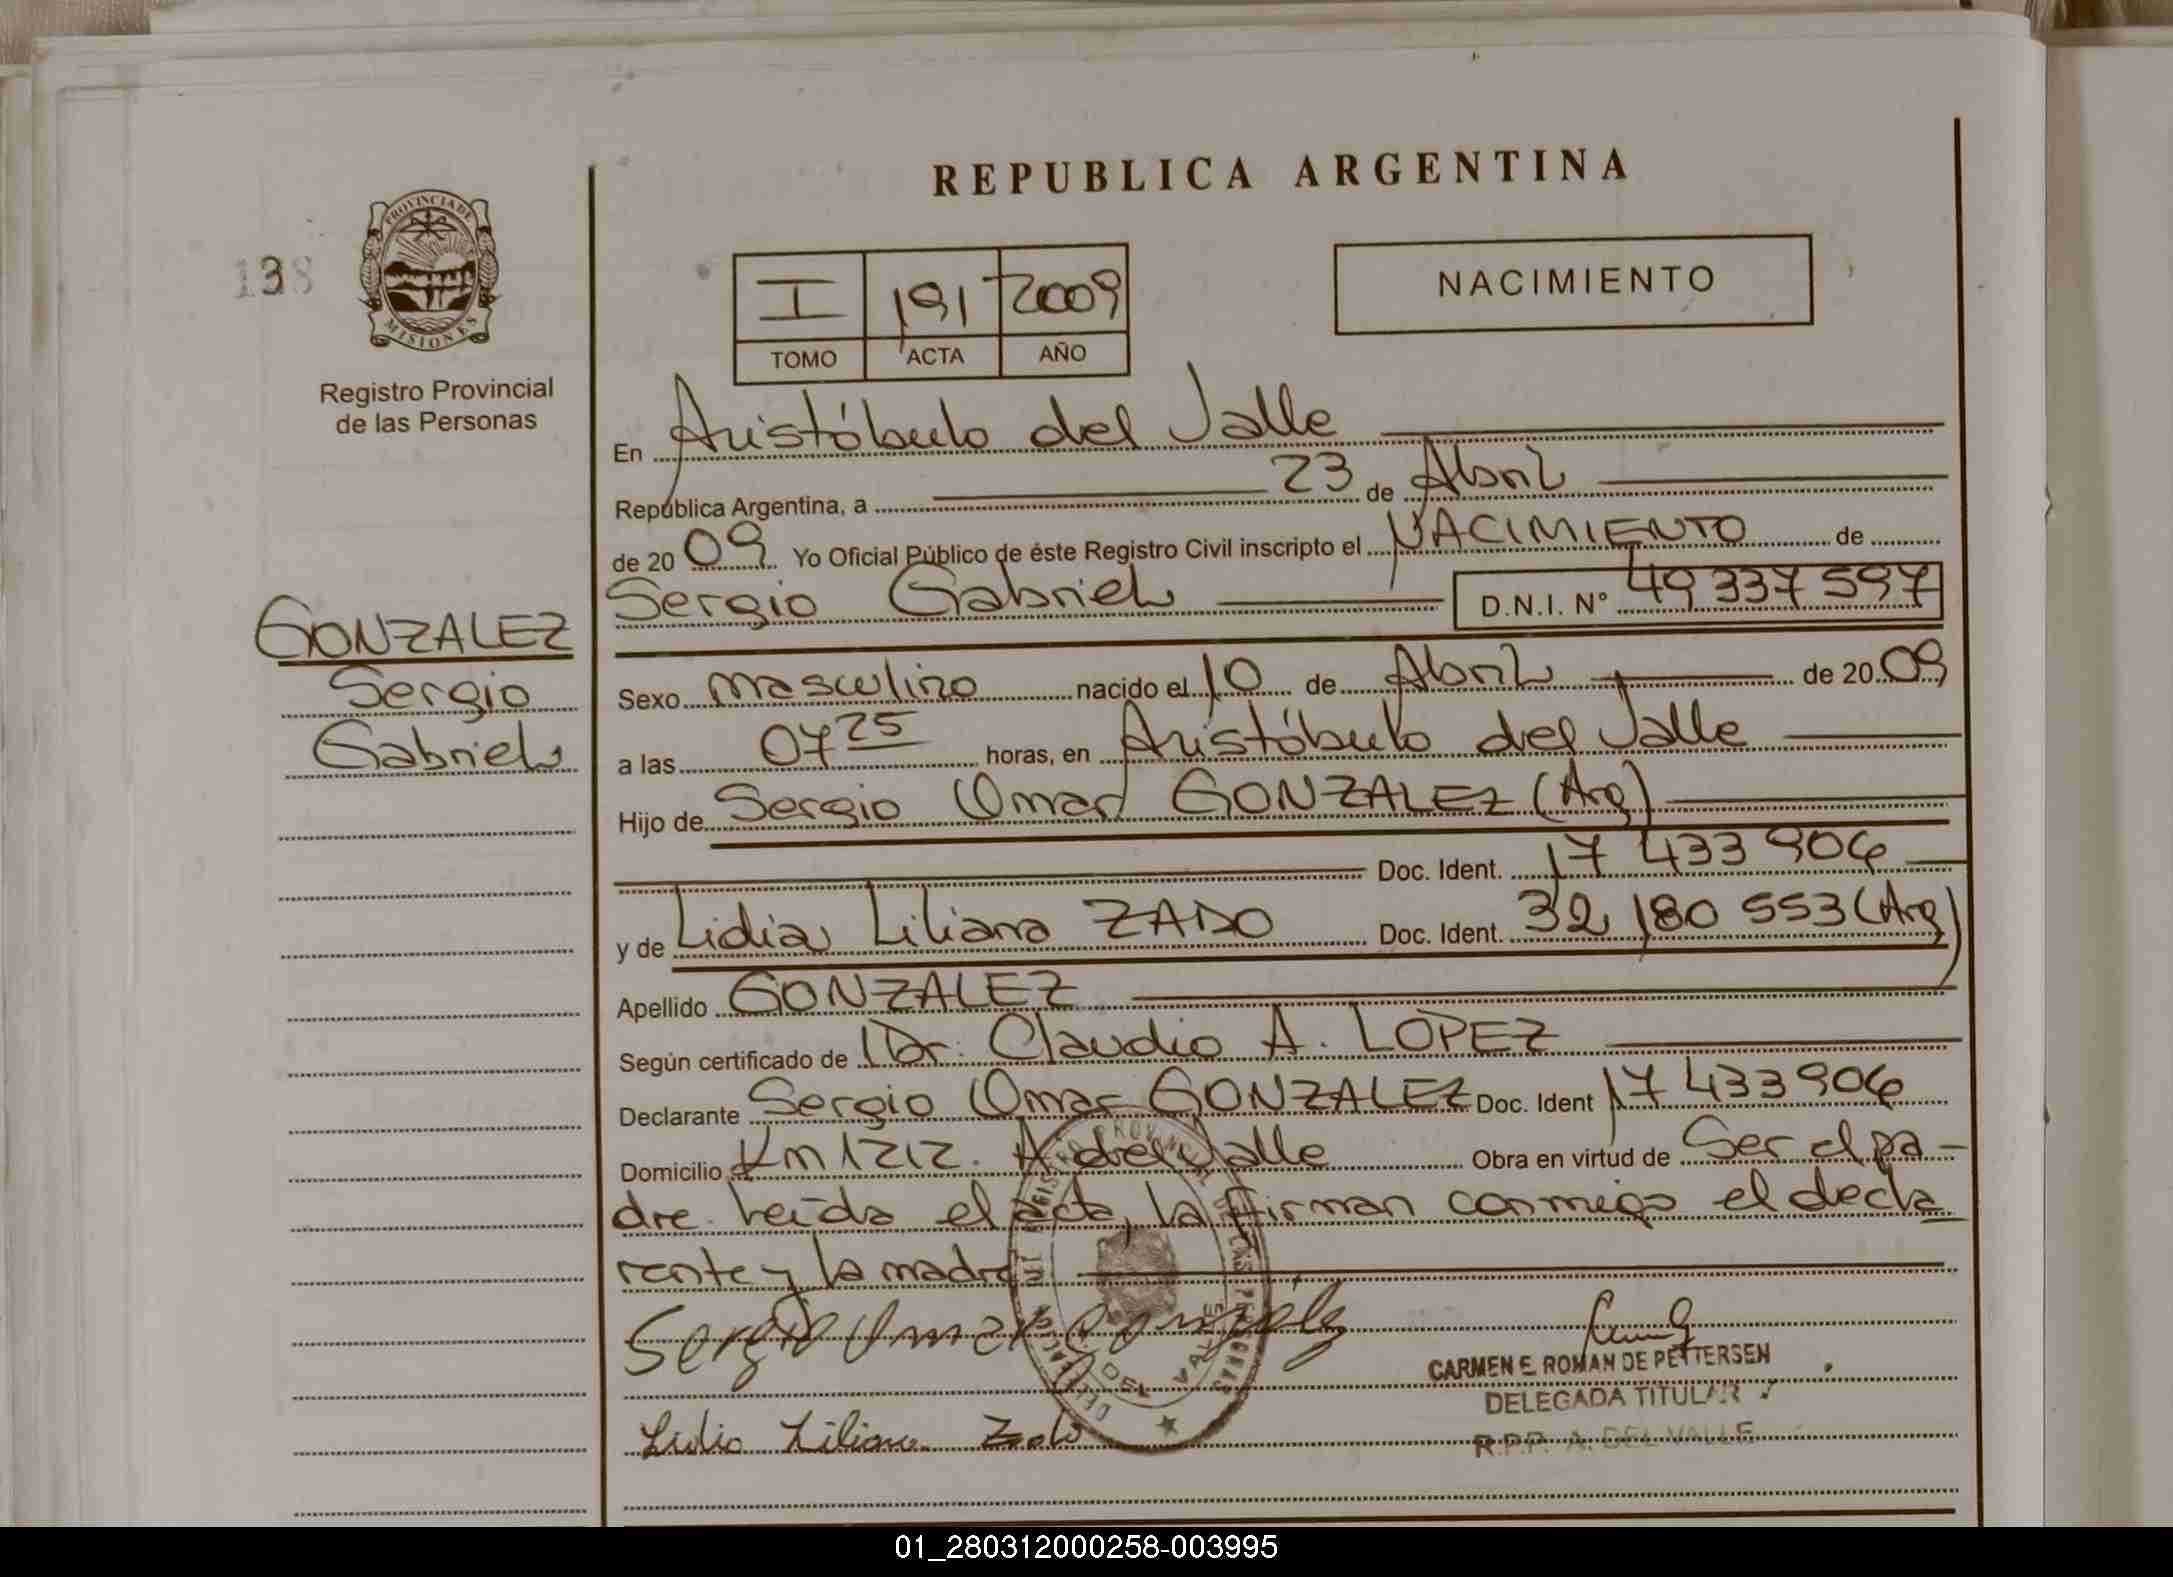 REPUBLICA ARGENTINA
138
PROVINCIA DE
MISIONES
Registro Provincial
de las Personas
I 191 2009
TOMO ACTA AÑO
NACIMIENTO
En Aristóbulo del Valle
República Argentina, a 23 de Abril
de 2009 Yo Oficial Público de éste Registro Civil inscripto el NACIMIENTO de
Sergio Gabriel D.N.I. N° 49 337 597
GONZALEZ
Sergio
Gabriel
Sexo masculino nacido el 10 de Abril de 2009
a las 07 25 horas, en Aristóbulo del Valle
Hijo de Sergio Omar GONZALEZ (Arg)
Doc. Ident. 17 433 906
y de Lidia Liliana ZADO Doc. Ident. 32 180 553 (Arg)
Apellido GONZALEZ
Según certificado de Dr. Claudio A. LOPEZ
Declarante Sergio Omar GONZALEZ Doc. Ident 17 433 906
Domicilio Km 1212. A del Valle Obra en virtud de Ser el pa-
dre. Leída el acta, la firman conmigo el decla
rante y la madre
Sergio Omar Gonzalez
CARMEN E. ROMAN DE PETTERSEN
DELEGADA TITULAR
R.P.P. A. DEL VALLE
Lidia Liliana Zado
01_280312000258-003995